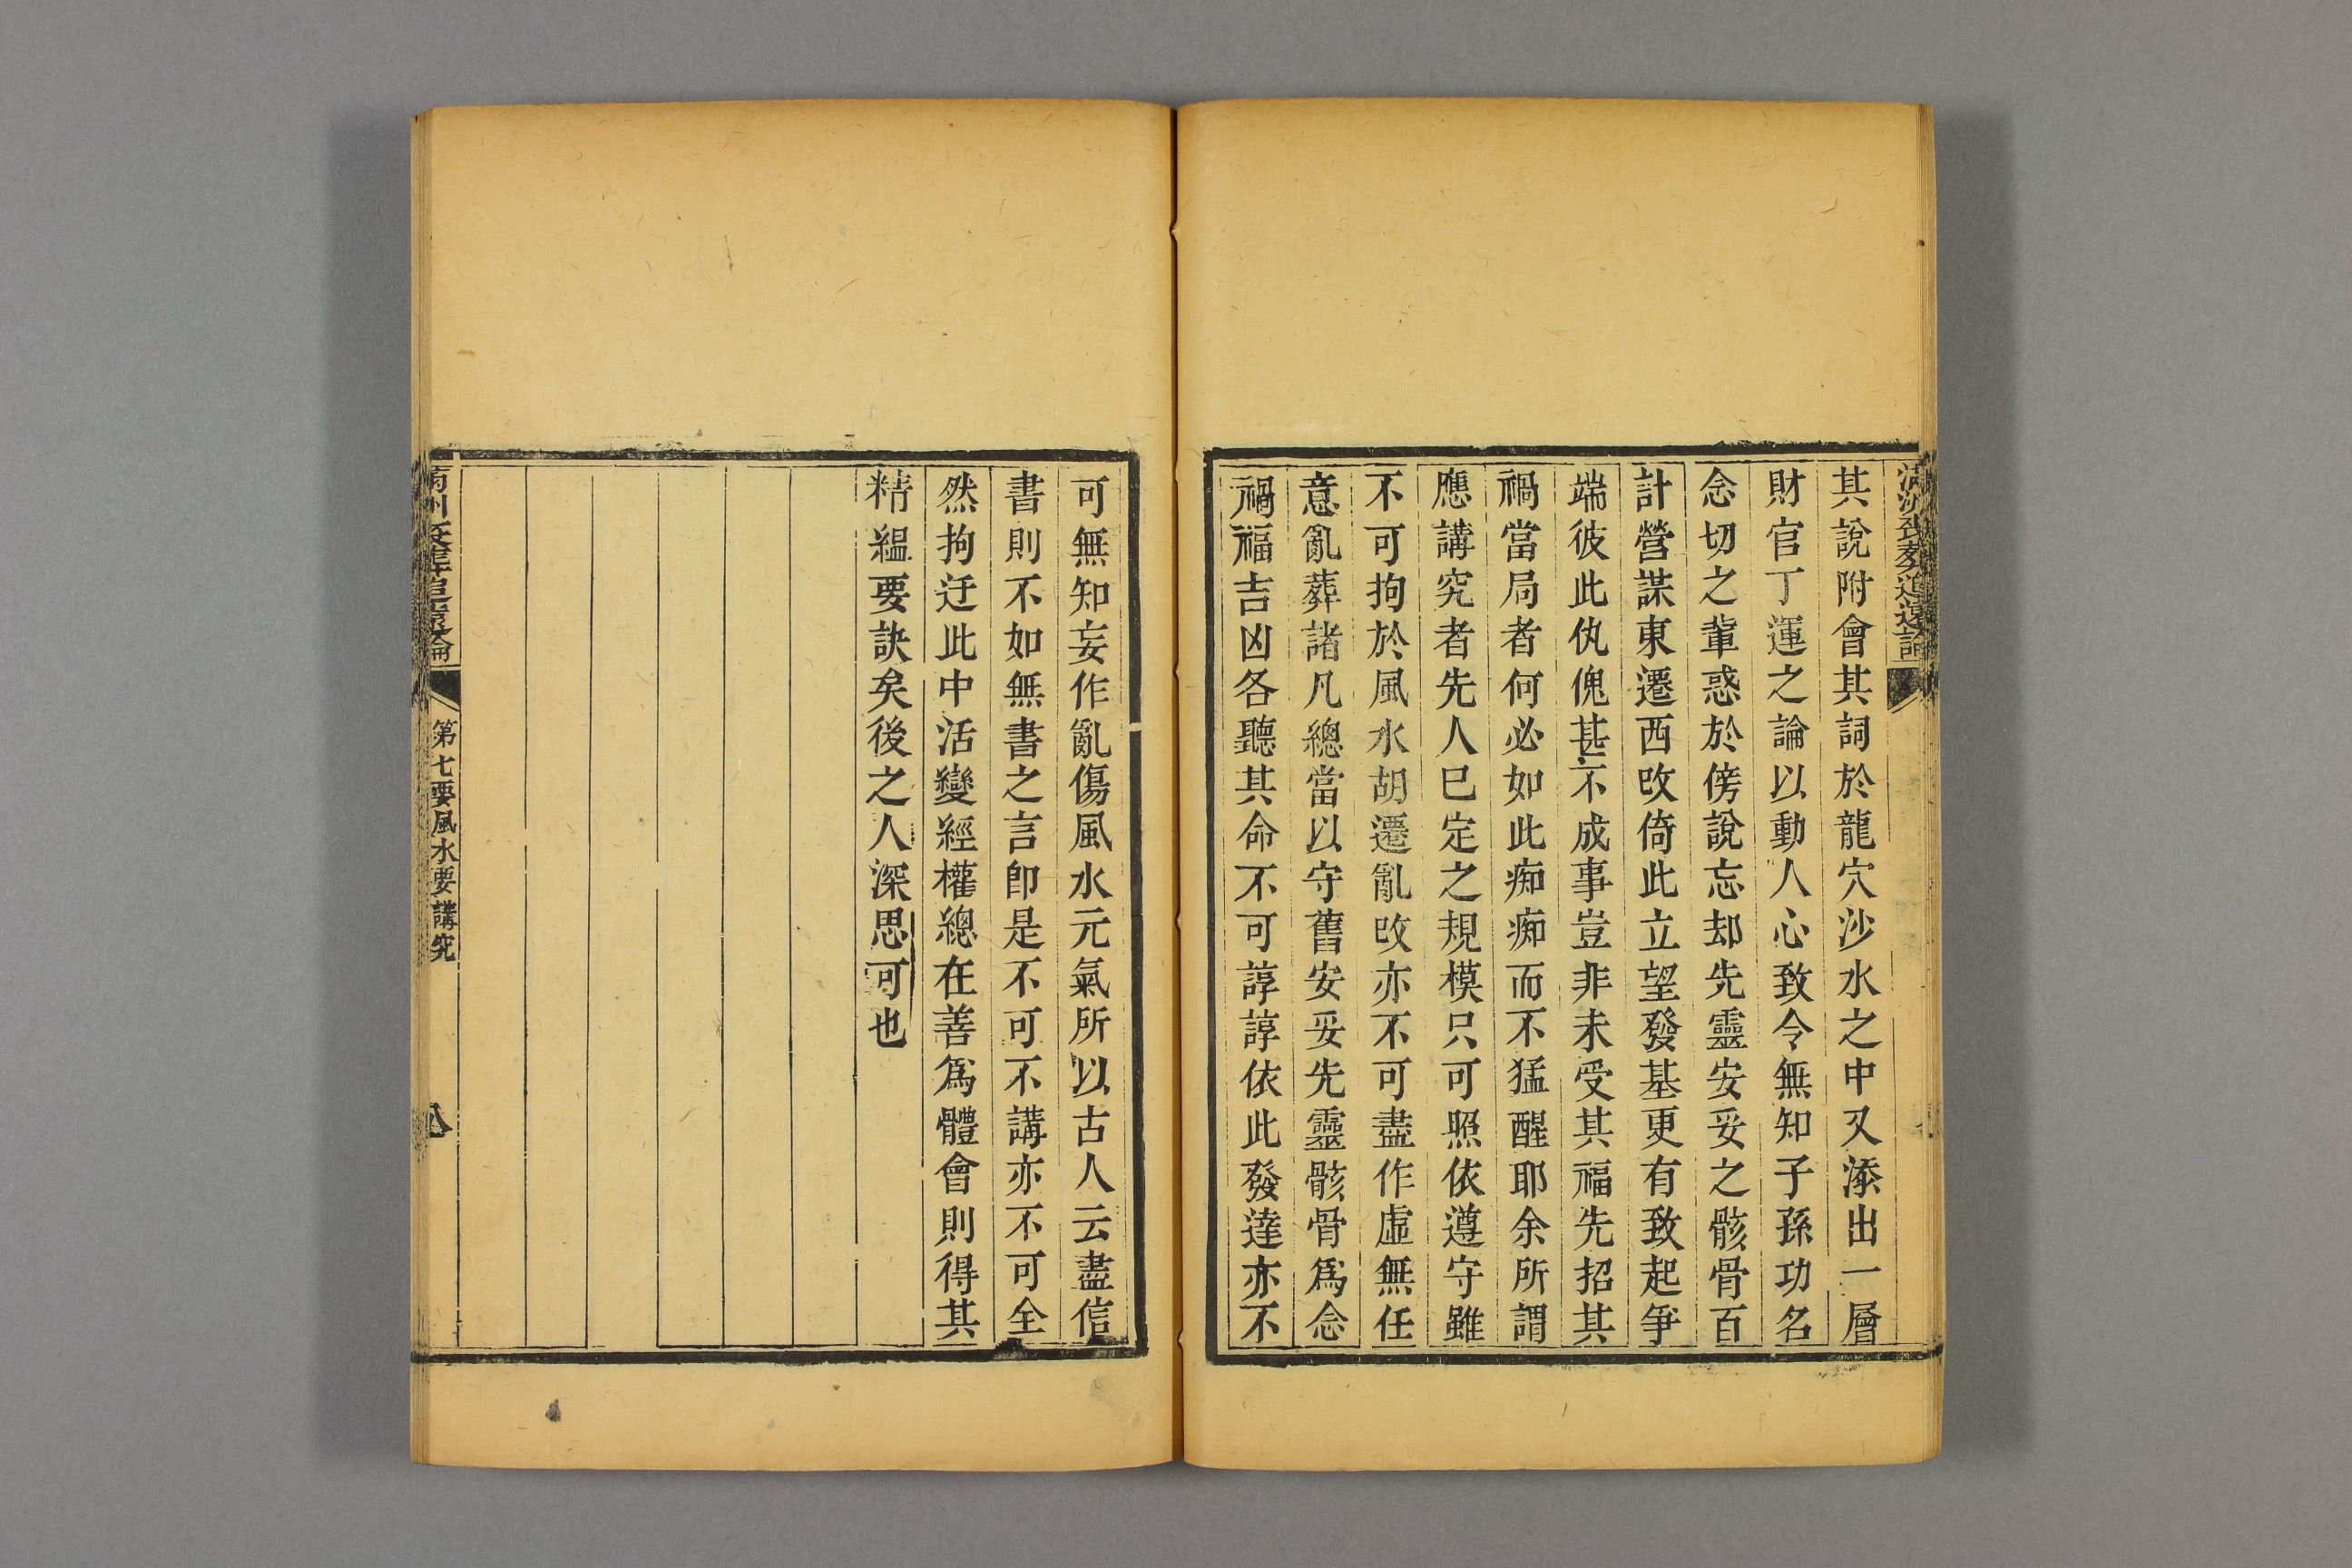 其說附會其詞於龍穴沙水之中又添出一層
財官丁運之論以動人心致令無知子孫功名
念切之輩惑於傍說忘却先靈安妥之骸骨百
計營謀東遷西改倚此立望發基更有致起爭
端彼此仇傀甚不成事豈非未受其福先招其
禍當局者何必如此痴痴而不猛醒耶余所謂
應講究者先人已定之規模只可照依遵守雖
不可拘於風水胡遷亂改亦不可盡作虛無任
意亂葬諸凡總當以守舊安妥先靈骸骨爲念
禍福吉凶各聽其命不可諄諄依此發達亦不
可無知妄作亂傷風水元氣所以古人云盡信
書則不如無書之言卽是不可不講亦不可全
然拘迂此中活變經權總在善爲體會則得其
精緼要訣矣後之人深思可也
第七要風水要講究
八